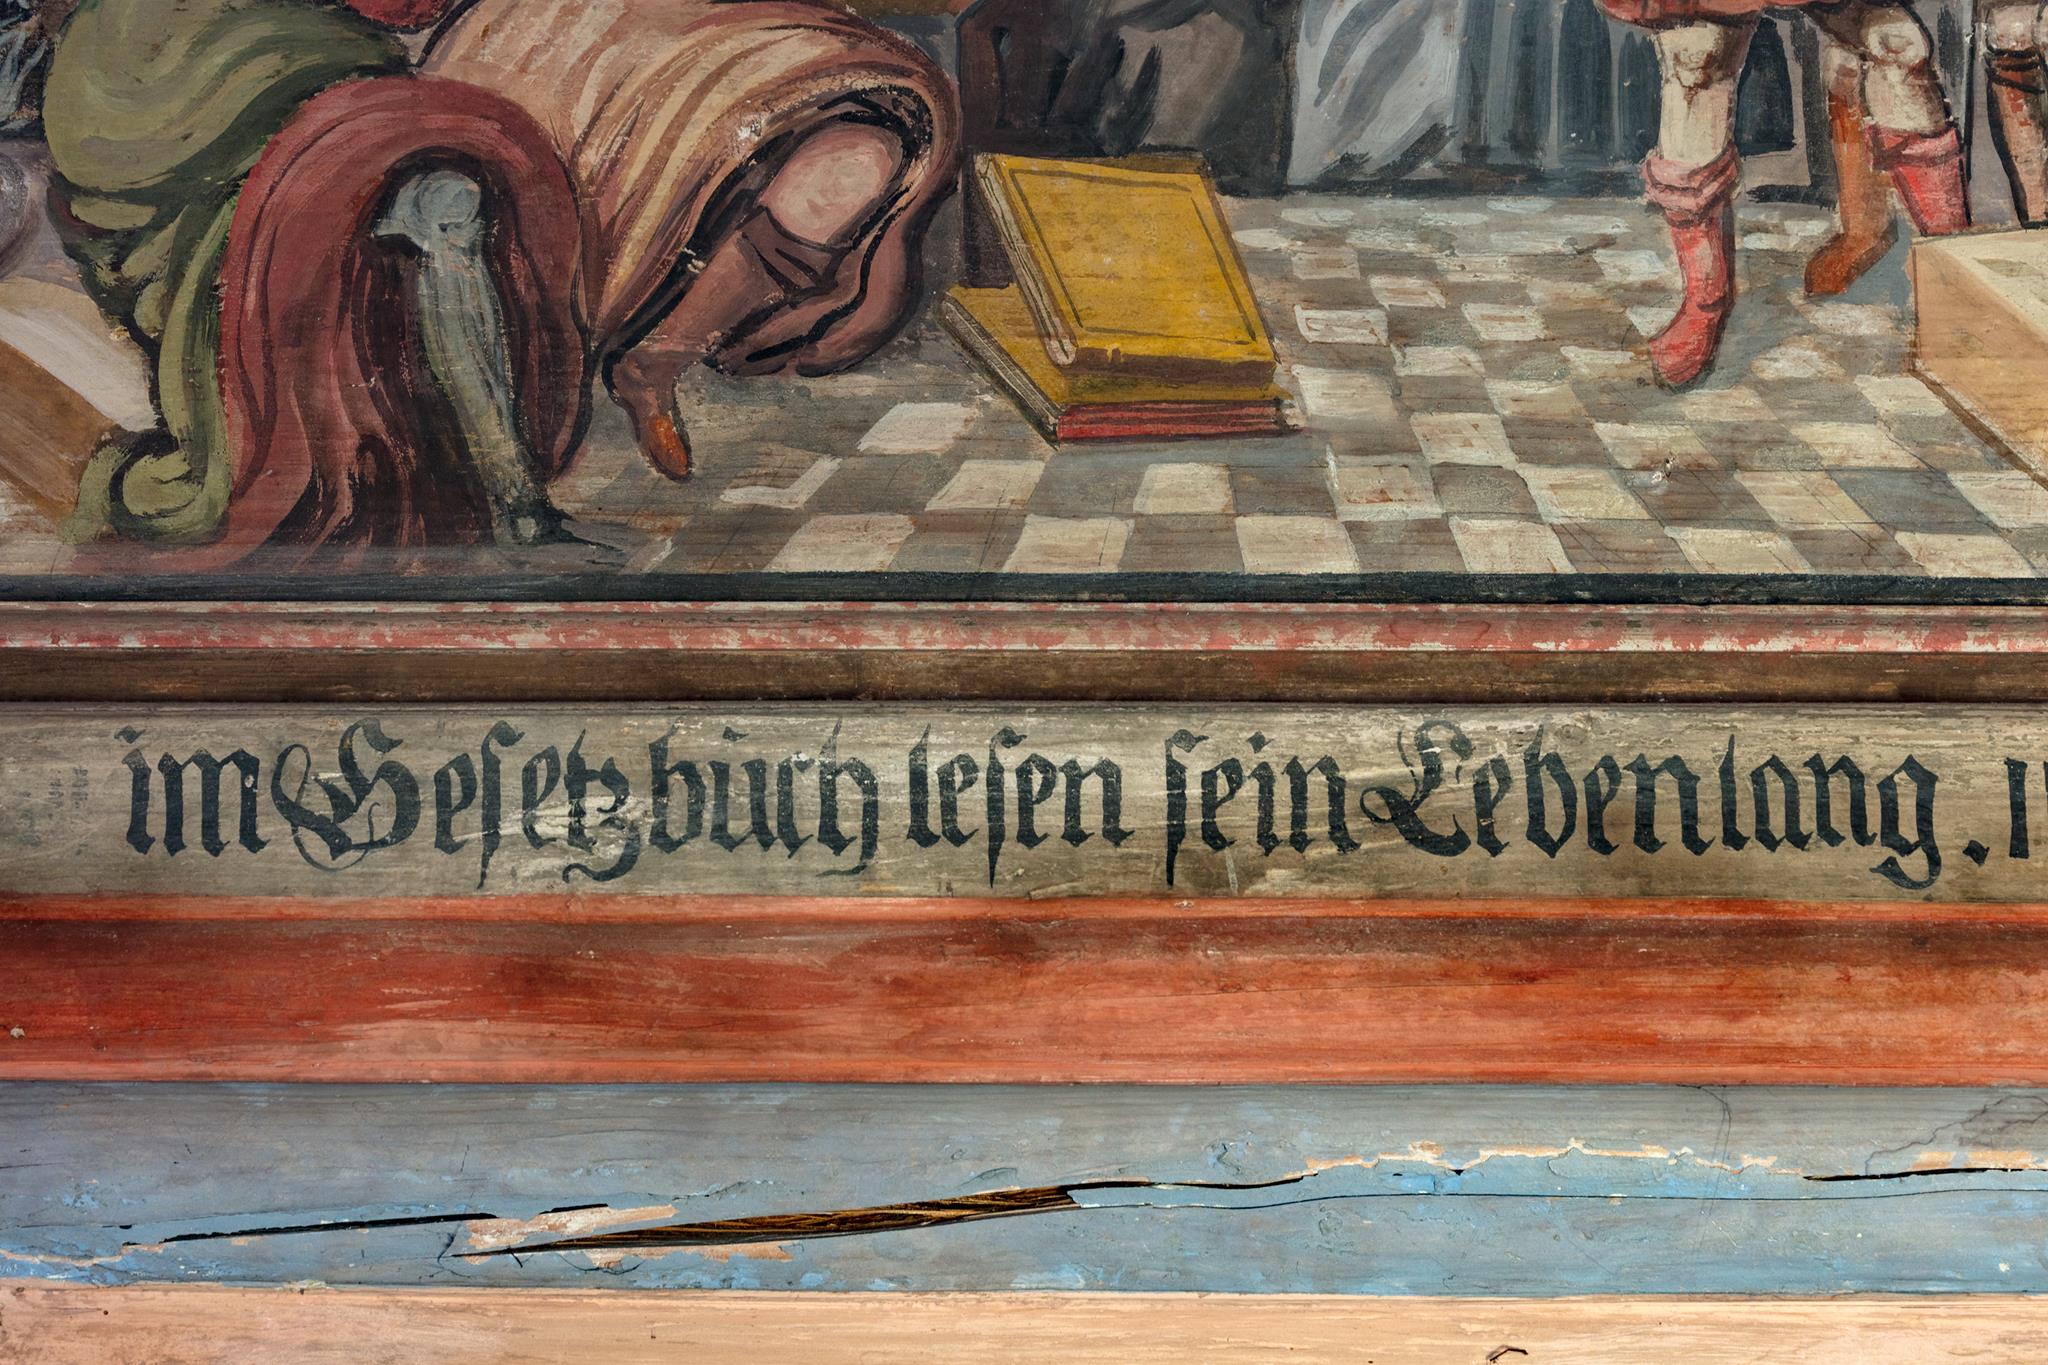 im Gesetzbuch lesen sein Lebenlang.